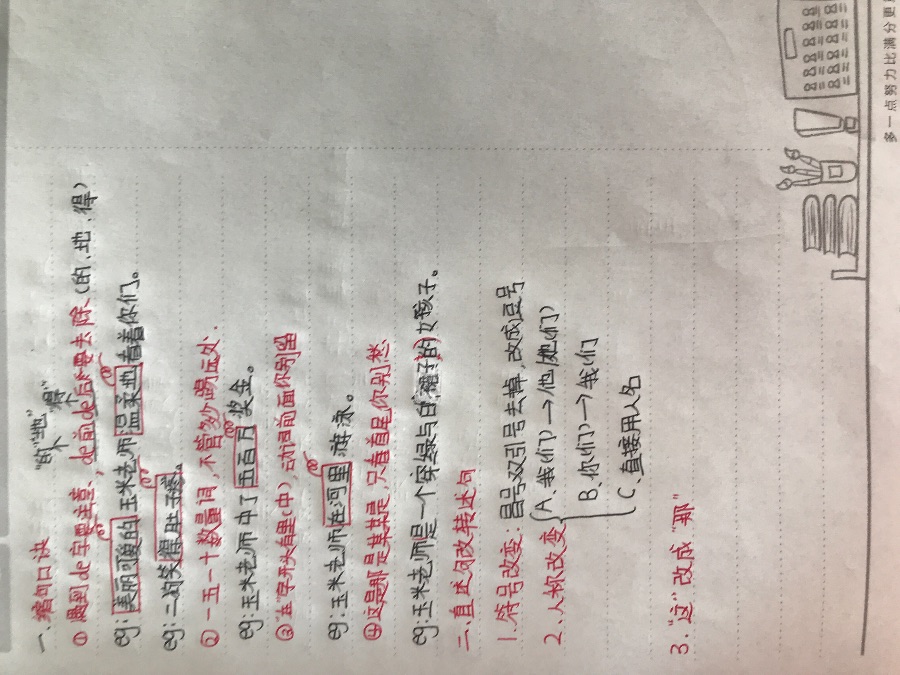 一、缩句口诀
"的""地""得"
① 遇到de字要注意,de前de后要去除(的、地、得)
eg:美丽可爱的玉米老师温柔地看着你们。
eg:二狗笑得肚子疼。
② 一五一十数量词,不管多少踢远处.
eg:玉米老师中了五百万奖金。
③ 在字开头有里(中),动词前面你别留
eg:玉米老师在河里游泳。
④ 这是那是某某是,只看首尾你别愁
eg:玉米老师是一个穿绿与白裙子的女孩子。
二、直述句改转述句
1.符号改变:冒号双引号去掉,改成逗号
2.人称改变 A、我(们)→他(她们)
B、你(们)→我(们
C、直接用人名
3."这"改成"那"
多一点努力比满分更